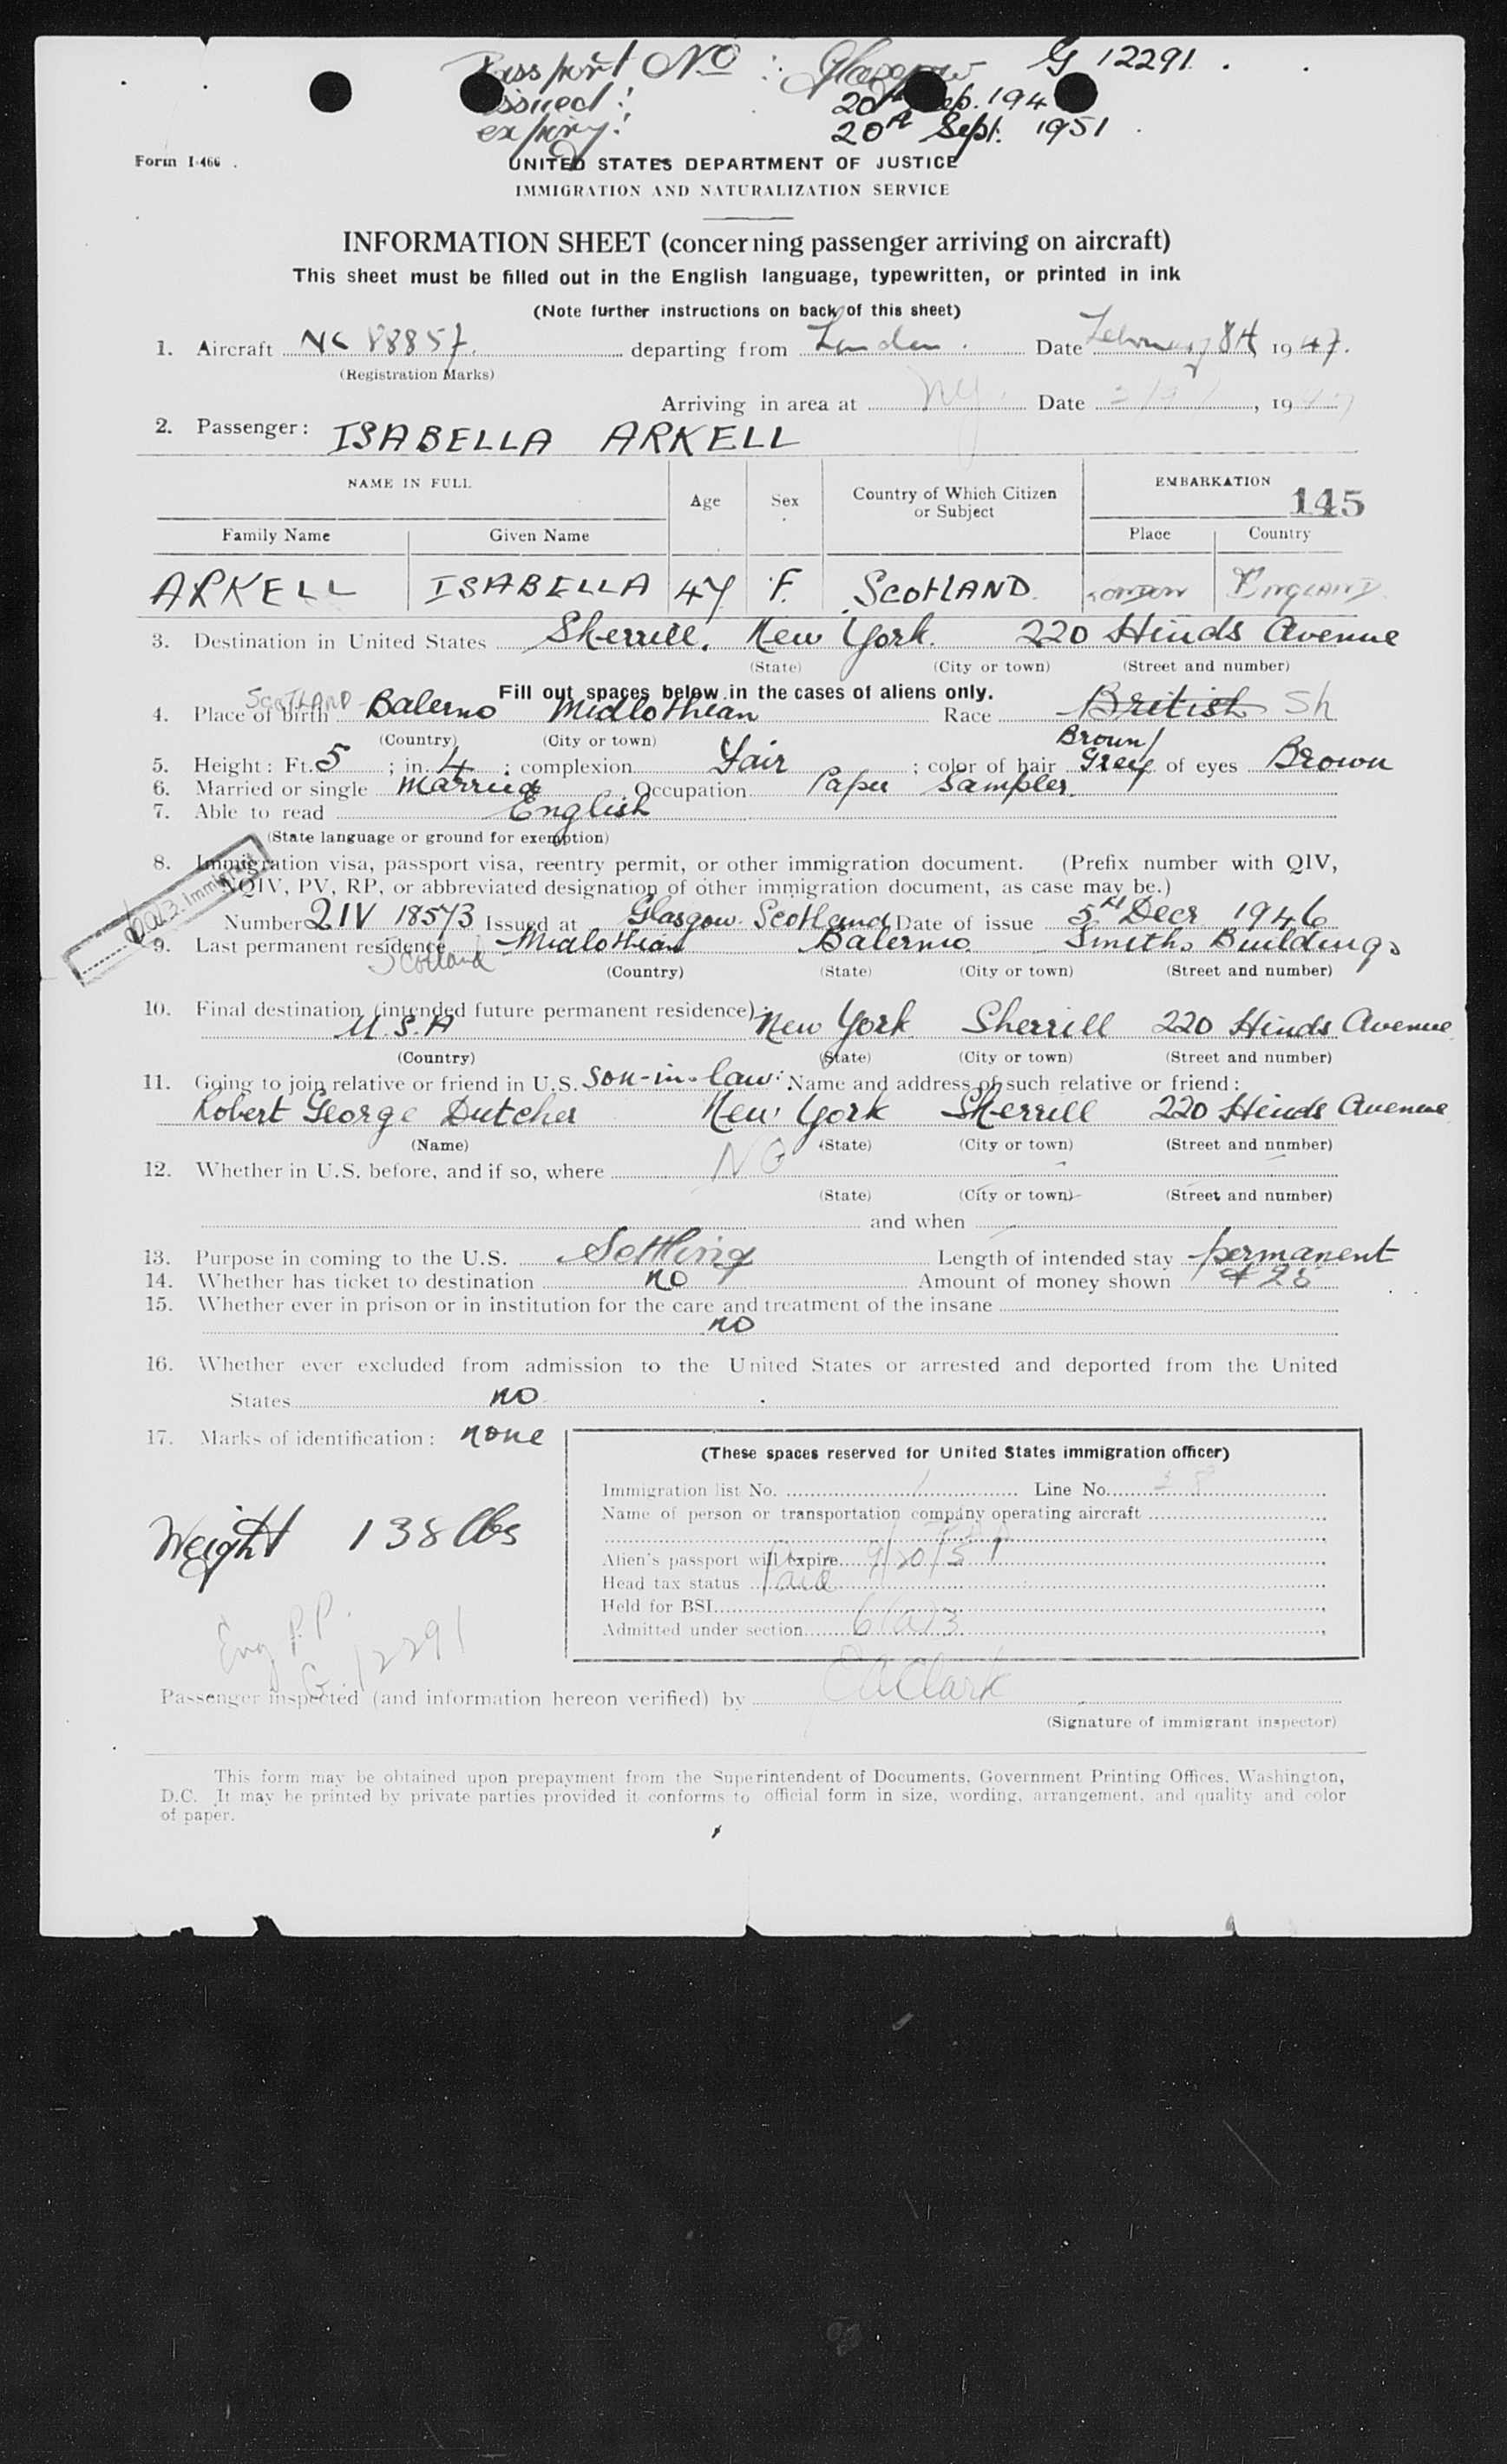 Passport No : Glasgow G 12291.
issued : 20th Sep. 194
expiry : 20th Sept. 1951
Form I-466
UNITED STATES DEPARTMENT OF JUSTICE
IMMIGRATION AND NATURALIZATION SERVICE
INFORMATION SHEET (concerning passenger arriving on aircraft)
This sheet must be filled out in the English language, typewritten, or printed in ink
(Note further instructions on back of this sheet)
1. Aircraft NC 88857. departing from London. Date February 8th, 1947.
(Registration Marks)
Arriving in area at NY. Date , 19
2. Passenger: ISABELLA ARKELL
NAME IN FULL Age Sex Country of Which Citizen or Subject EMBARKATION 145
Family Name Given Name Place Country
ARKELL ISABELLA 47 F. SCOTLAND. LONDON ENGLAND.
3. Destination in United States Sherrill. New York. 220 Hinds Avenue
(State) (City or town) (Street and number)
Fill out spaces below in the cases of aliens only.
4. Place of birth SCOTLAND Balerno Midlothian Race British Sh
(Country) (City or town)
5. Height: Ft. 5; in. 4; complexion Fair; color of hair Brown/Grey of eyes Brown
6. Married or single Married Occupation Paper Sampler.
7. Able to read English
(State language or ground for exemption)
8. Immigration visa, passport visa, reentry permit, or other immigration document. (Prefix number with QIV,
NQIV, PV, RP, or abbreviated designation of other immigration document, as case may be.)
Number QIV 18573 Issued at Glasgow Scotland Date of issue 5th Decr 1946
9. Last permanent residence Scotland Midlothian Balerno Smiths Buildings
(Country) (State) (City or town) (Street and number)
10. Final destination (intended future permanent residence):
U.S.A New York Sherrill 220 Hinds Avenue
(Country) (State) (City or town) (Street and number)
11. Going to join relative or friend in U.S. Son-in-law: Name and address of such relative or friend:
Robert George Dutcher New York Sherrill 220 Hinds Avenue
(Name) (State) (City or town) (Street and number)
12. Whether in U.S. before, and if so, where NO
(State) (City or town) (Street and number)
and when
13. Purpose in coming to the U.S. Settling Length of intended stay permanent
14. Whether has ticket to destination no Amount of money shown $ 28
15. Whether ever in prison or in institution for the care and treatment of the insane
no
16. Whether ever excluded from admission to the United States or arrested and deported from the United
States no
17. Marks of identification: none
Weight 138 lbs
Eng P.P.
G. 12291
(These spaces reserved for United States immigration officer)
Immigration list No. 1 Line No.
Name of person or transportation company operating aircraft
Alien's passport will expire 9/20/51
Head tax status Paid
Held for BSI
Admitted under section 6(a)3
Passenger inspected (and information hereon verified) by CAClark
(Signature of immigrant inspector)
This form may be obtained upon prepayment from the Superintendent of Documents, Government Printing Offices, Washington,
D.C. It may be printed by private parties provided it conforms to official form in size, wording, arrangement, and quality and color
of paper.